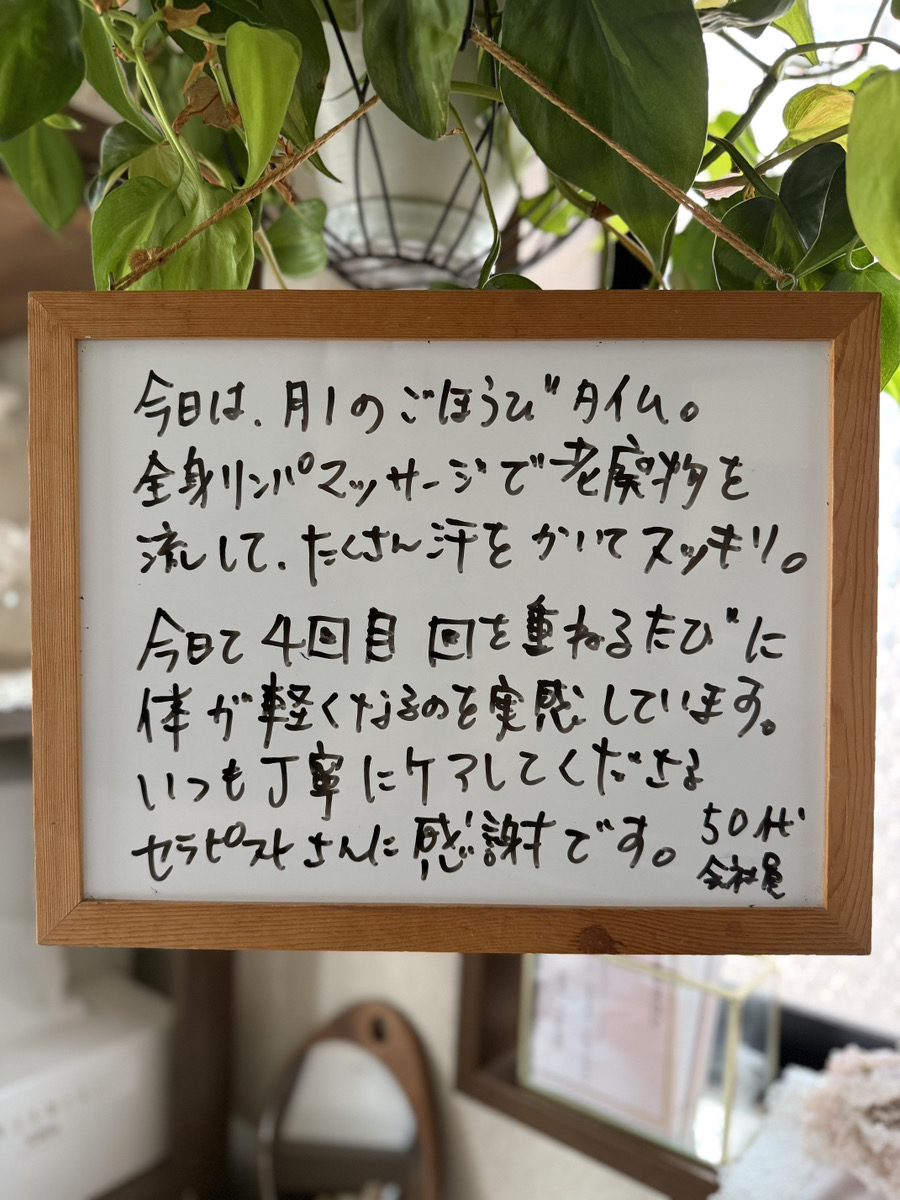 今日は、月1のごほうびタイム。
全身リンパマッサージで老廃物を
流して、たくさん汗をかいてスッキリ。
今日で4回目 回を重ねるたびに
体が軽くなるのを実感しています。
いつも丁寧にケアしてくださる
セラピストさんに感謝です。
50代
会社員